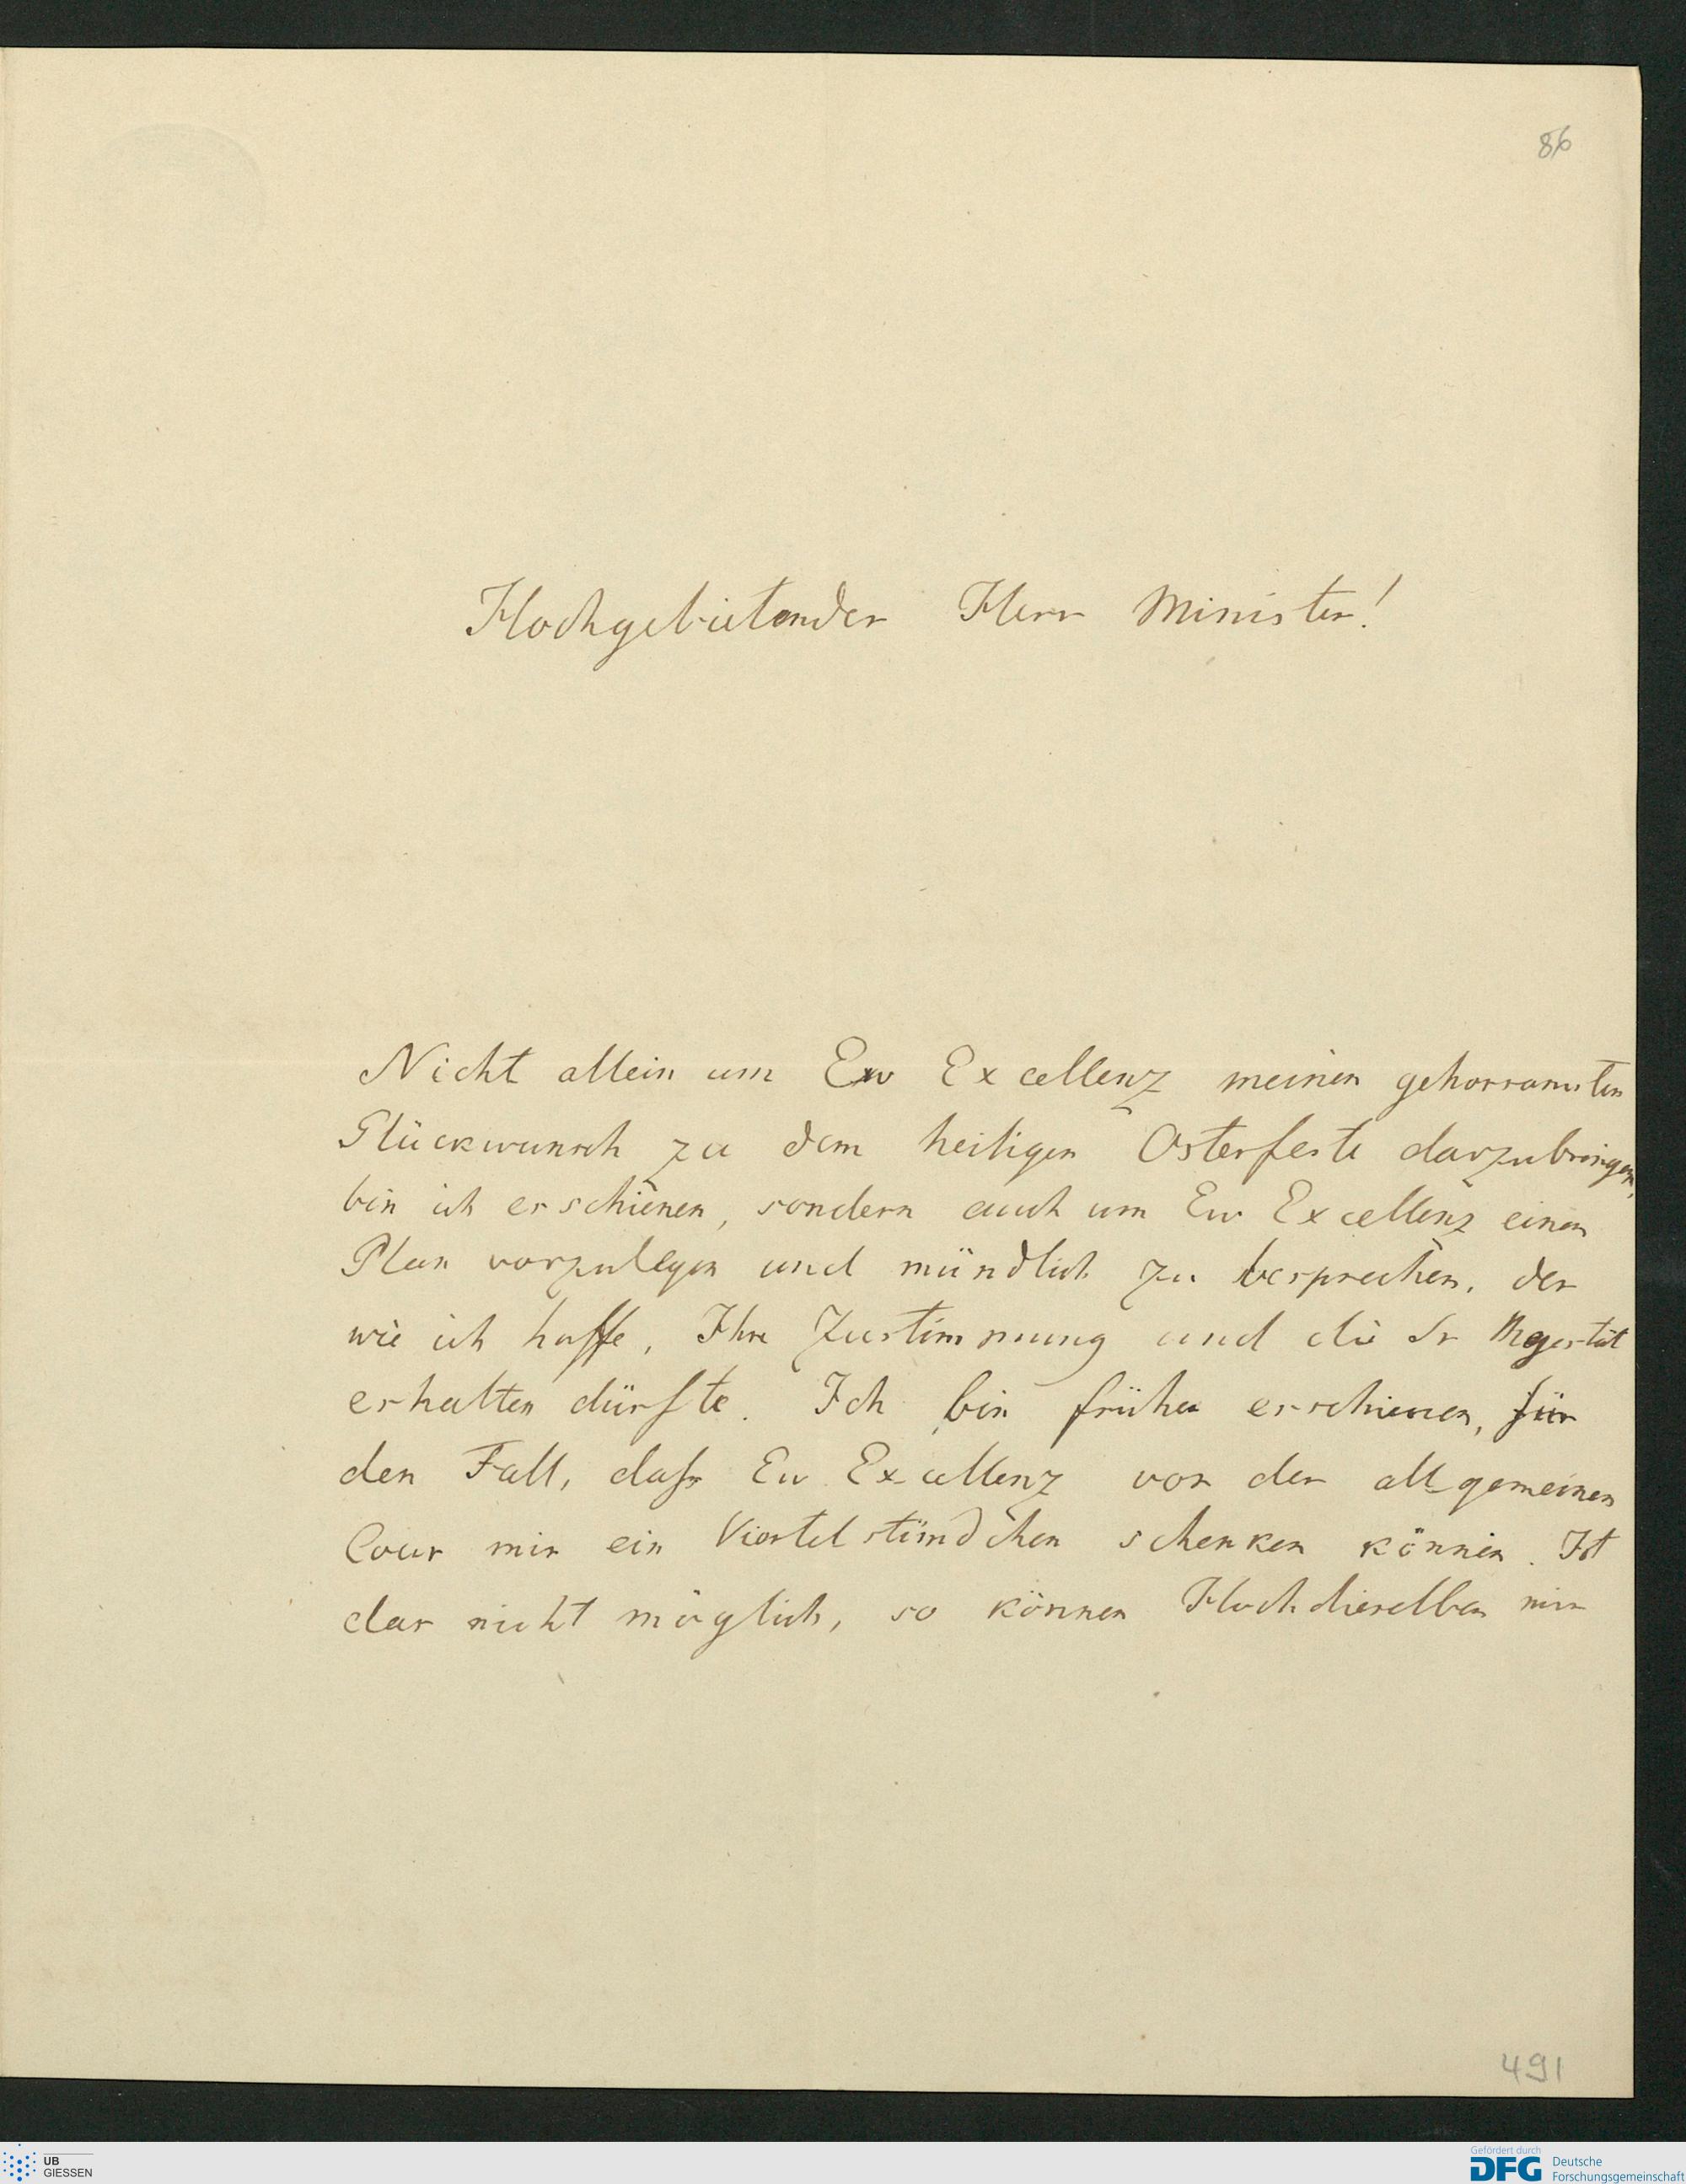 86
Hochgebietender Herr Minister!
Nicht allein um Ew Excellenz meinen gehorsamsten
Glückwunsch zu dem heiligen Osterfeste darzubringen,
bin ich erschienen, sondern auch um Ew Excellenz einen
Plan vorzulegen und mündlich zu besprechen, der
wie ich hoffe, Ihre Zustimmung und die Sr Majestät
erhalten dürfte. Ich bin früher erschienen, für
den Fall, daſs Ew Excellenz vor der allgemeinen
Cour mir ein Viertelstündchen schenken können. Ist
das nicht möglich, so können Hochdieselben mir
491
UB
GIESSEN
Gefördert durch
DFG Deutsche
Forschungsgemeinschaft